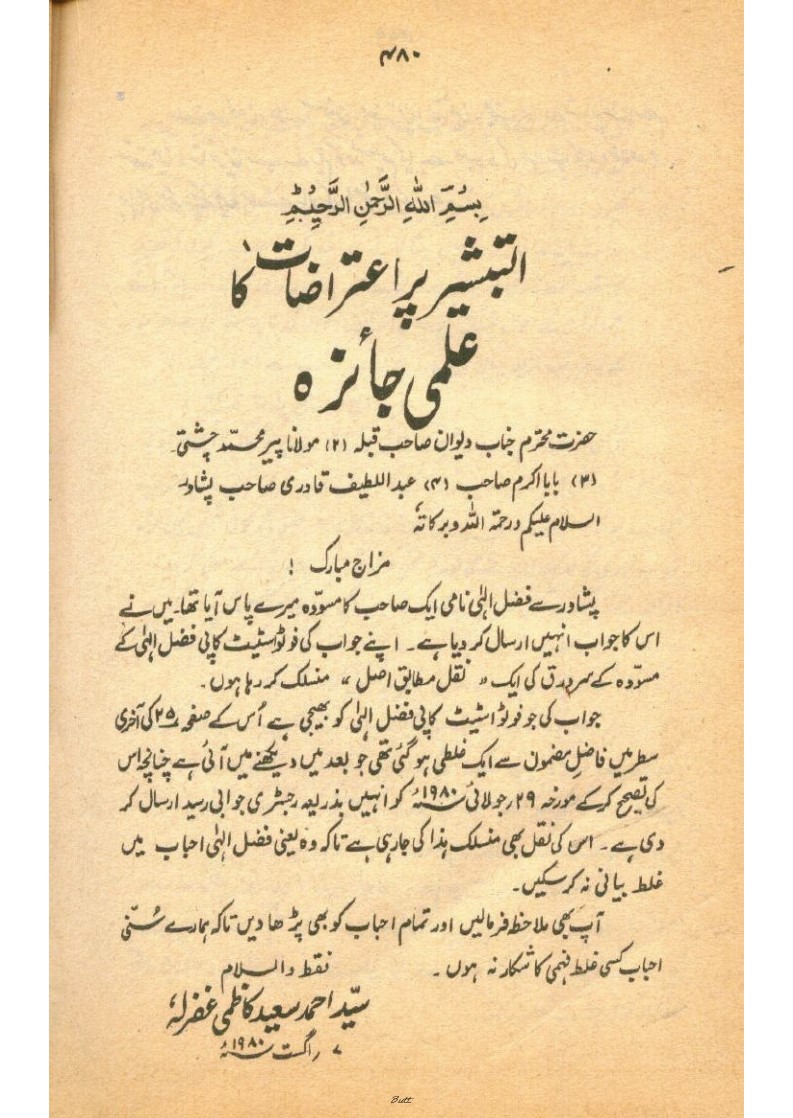 ۴۸۰
بِسْمِ اللهِ الرَّحْمٰنِ الرَّحِيْمِ
التبشیر پر اعتراضات کا
علمی جائزہ
حضرت محترم جناب دیوان صاحب قبلہ (۲) مولانا پیر محمّد چشتی
(۳) بابا اکرم صاحب (۴) عبداللطیف قادری صاحب پشاور
السلام علیکم ورحمۃ اللہ وبرکاتہٗ
مزاج مبارک !
پشاور سے فضل الٰہی نامی ایک صاحب کا مسوّدہ میرے پاس آیا تھا۔ میں نے
اس کا جواب انہیں ارسال کر دیا ہے۔ اپنے جواب کی فوٹو اسٹیٹ کاپی فضل الٰہی کے
مسوّدہ کے سرورق کی ایک "نقل مطابق اصل" منسلک کر رہا ہوں۔
جواب کی جو فوٹو اسٹیٹ کاپی فضل الٰہی کو بھیجی ہے اُس کے صفحہ ۲۵ کی آخری
سطر میں فاضل مضمون سے ایک غلطی ہو گئی تھی جو بعد میں دیکھنے میں آئی ہے چنانچہ اس
کی تصحیح کر کے مورخہ ۲۹ جولائی ۱۹۸۰ء کو انہیں بذریعہ رجسٹری جوابی رسید ارسال کر
دی ہے۔ اس کی نقل بھی منسلک ہذا کی جا رہی ہے تاکہ وہ یعنی فضل الٰہی احباب میں
غلط بیانی نہ کر سکیں۔
آپ بھی ملاحظہ فرمالیں اور تمام احباب کو بھی پڑھا دیں تاکہ ہمارے سُنّی
احباب کسی غلط فہمی کا شکار نہ ہوں۔
فقط والسلام
سیّد احمد سعید کاظمی غفرلہٗ
۷ اگست ۱۹۸۰ء
Butt